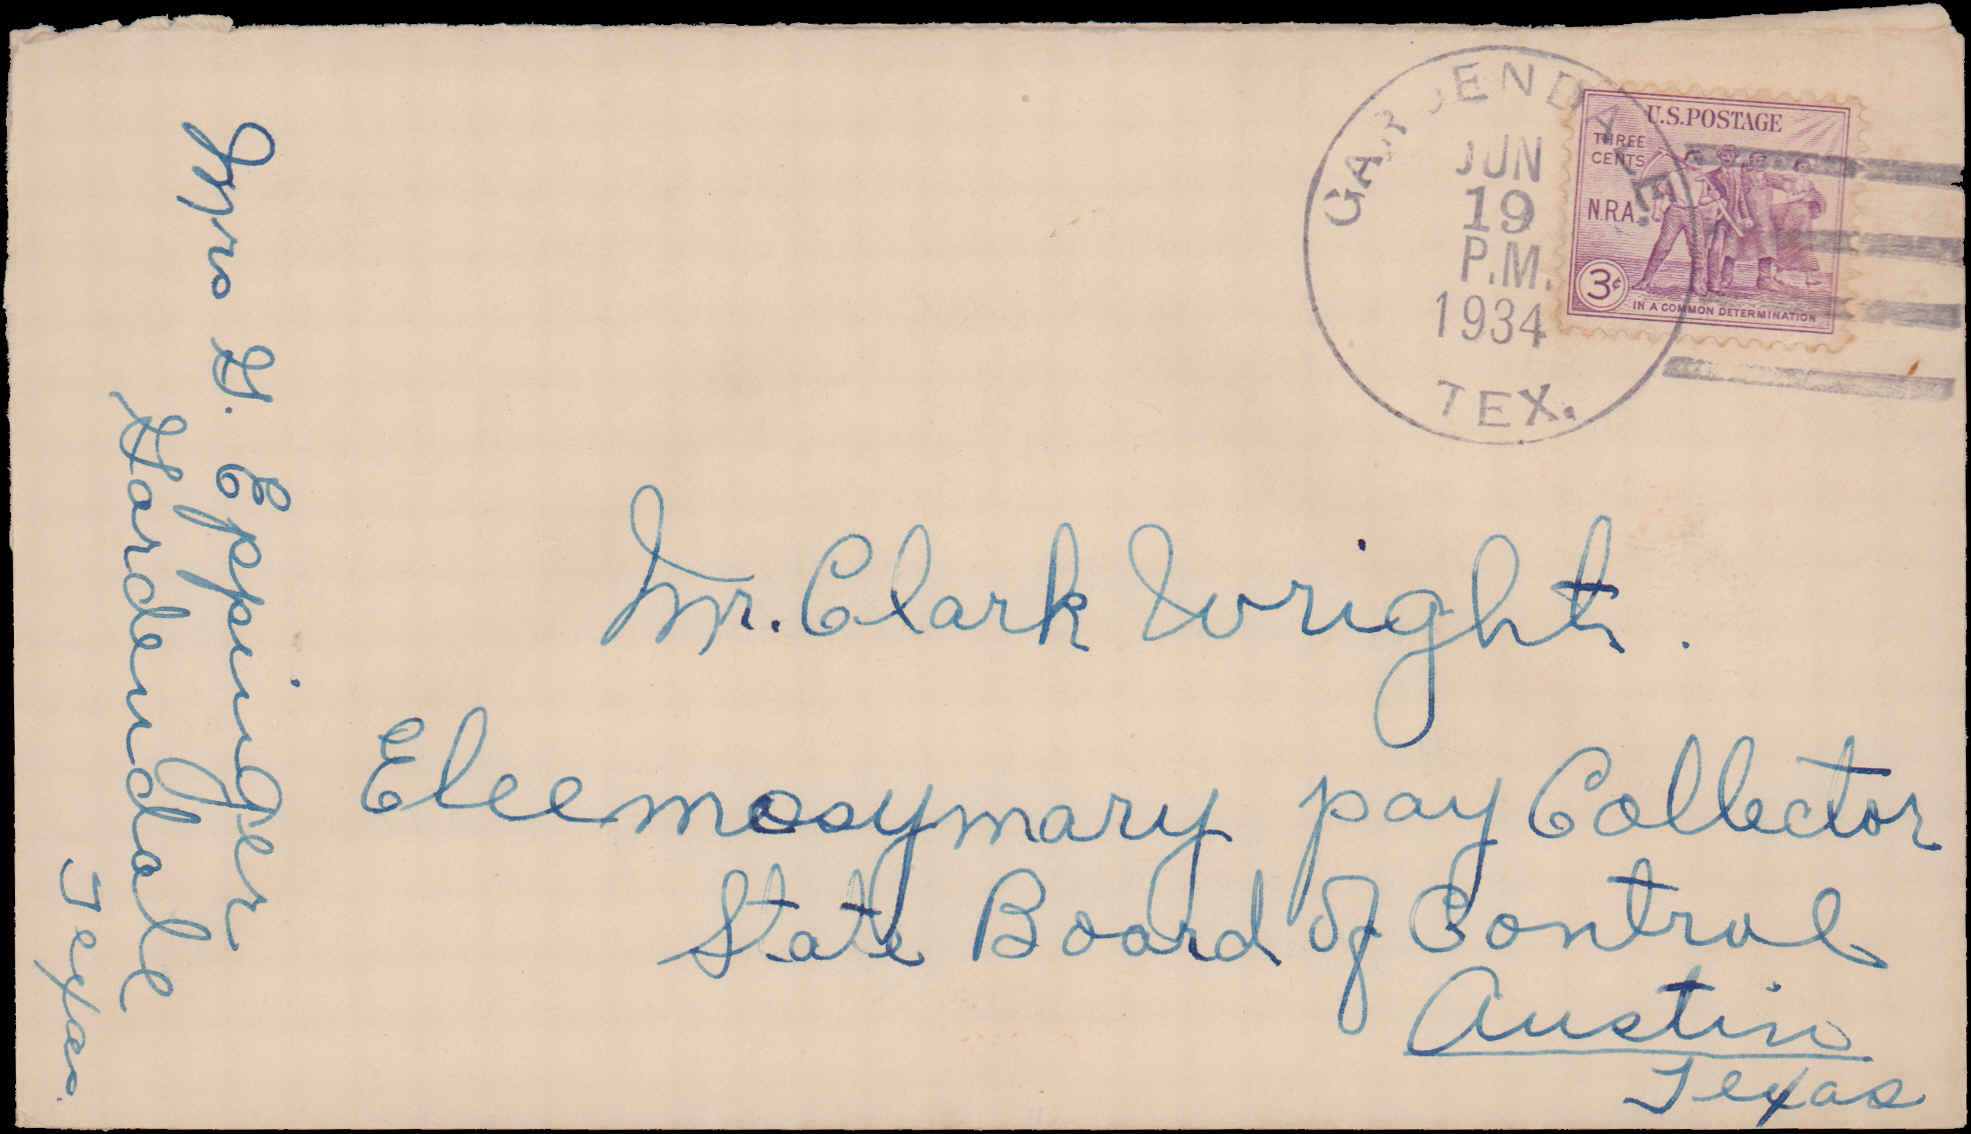 Mrs G. Eppinger
Gardendale
Texas.
GARDENDALE.
JUN
19
P.M.
1934
TEX.
U.S.POSTAGE
THREE
CENTS
N.R.A.
3¢
IN A COMMON DETERMINATION
Mr. Clark Wright.
Eleemosymary pay Collector
State Board of Control
Austin
Texas